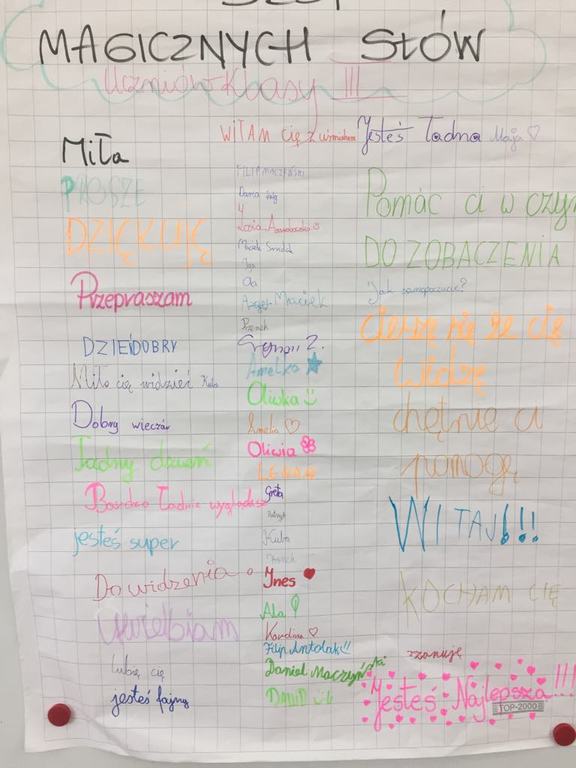 MAGICZNYCH SŁÓW
Uczniów klasy III
Miła
PROSZĘ
DZIĘKUJĘ
Przepraszam
DZIEŃDOBRY
Miło cię widzieć Kuba
Dobry wieczór
Ładny dzwon
Bardzo Ładnie wyglądasz
jesteś super
Do widzenia
Uwielbiam
Lubię cię
jesteś fajny
WITAM cię z uśmiechem
FILIP MACZYŃSKI
Daria
4
Zosia
Maciek
Iga
Ola
Maciek
Amelka
Oliwka
Amelia
Oliwia
LENA
Greta
Patryk
Kuba
Ines
Ala
Karolina
Filip Antolak!!
Daniel Maczyński
DAWID
Jesteś Ładna Maja
Pomóc ci w czym
DO ZOBACZENIA
Jak samopoczucie?
Cieszę się że cię
Widzę
chętnie ci
pomogę
WITAJ!!!
KOCHAM CIĘ
szanuję
Jesteś Najlepsza!!!
TOP-2000